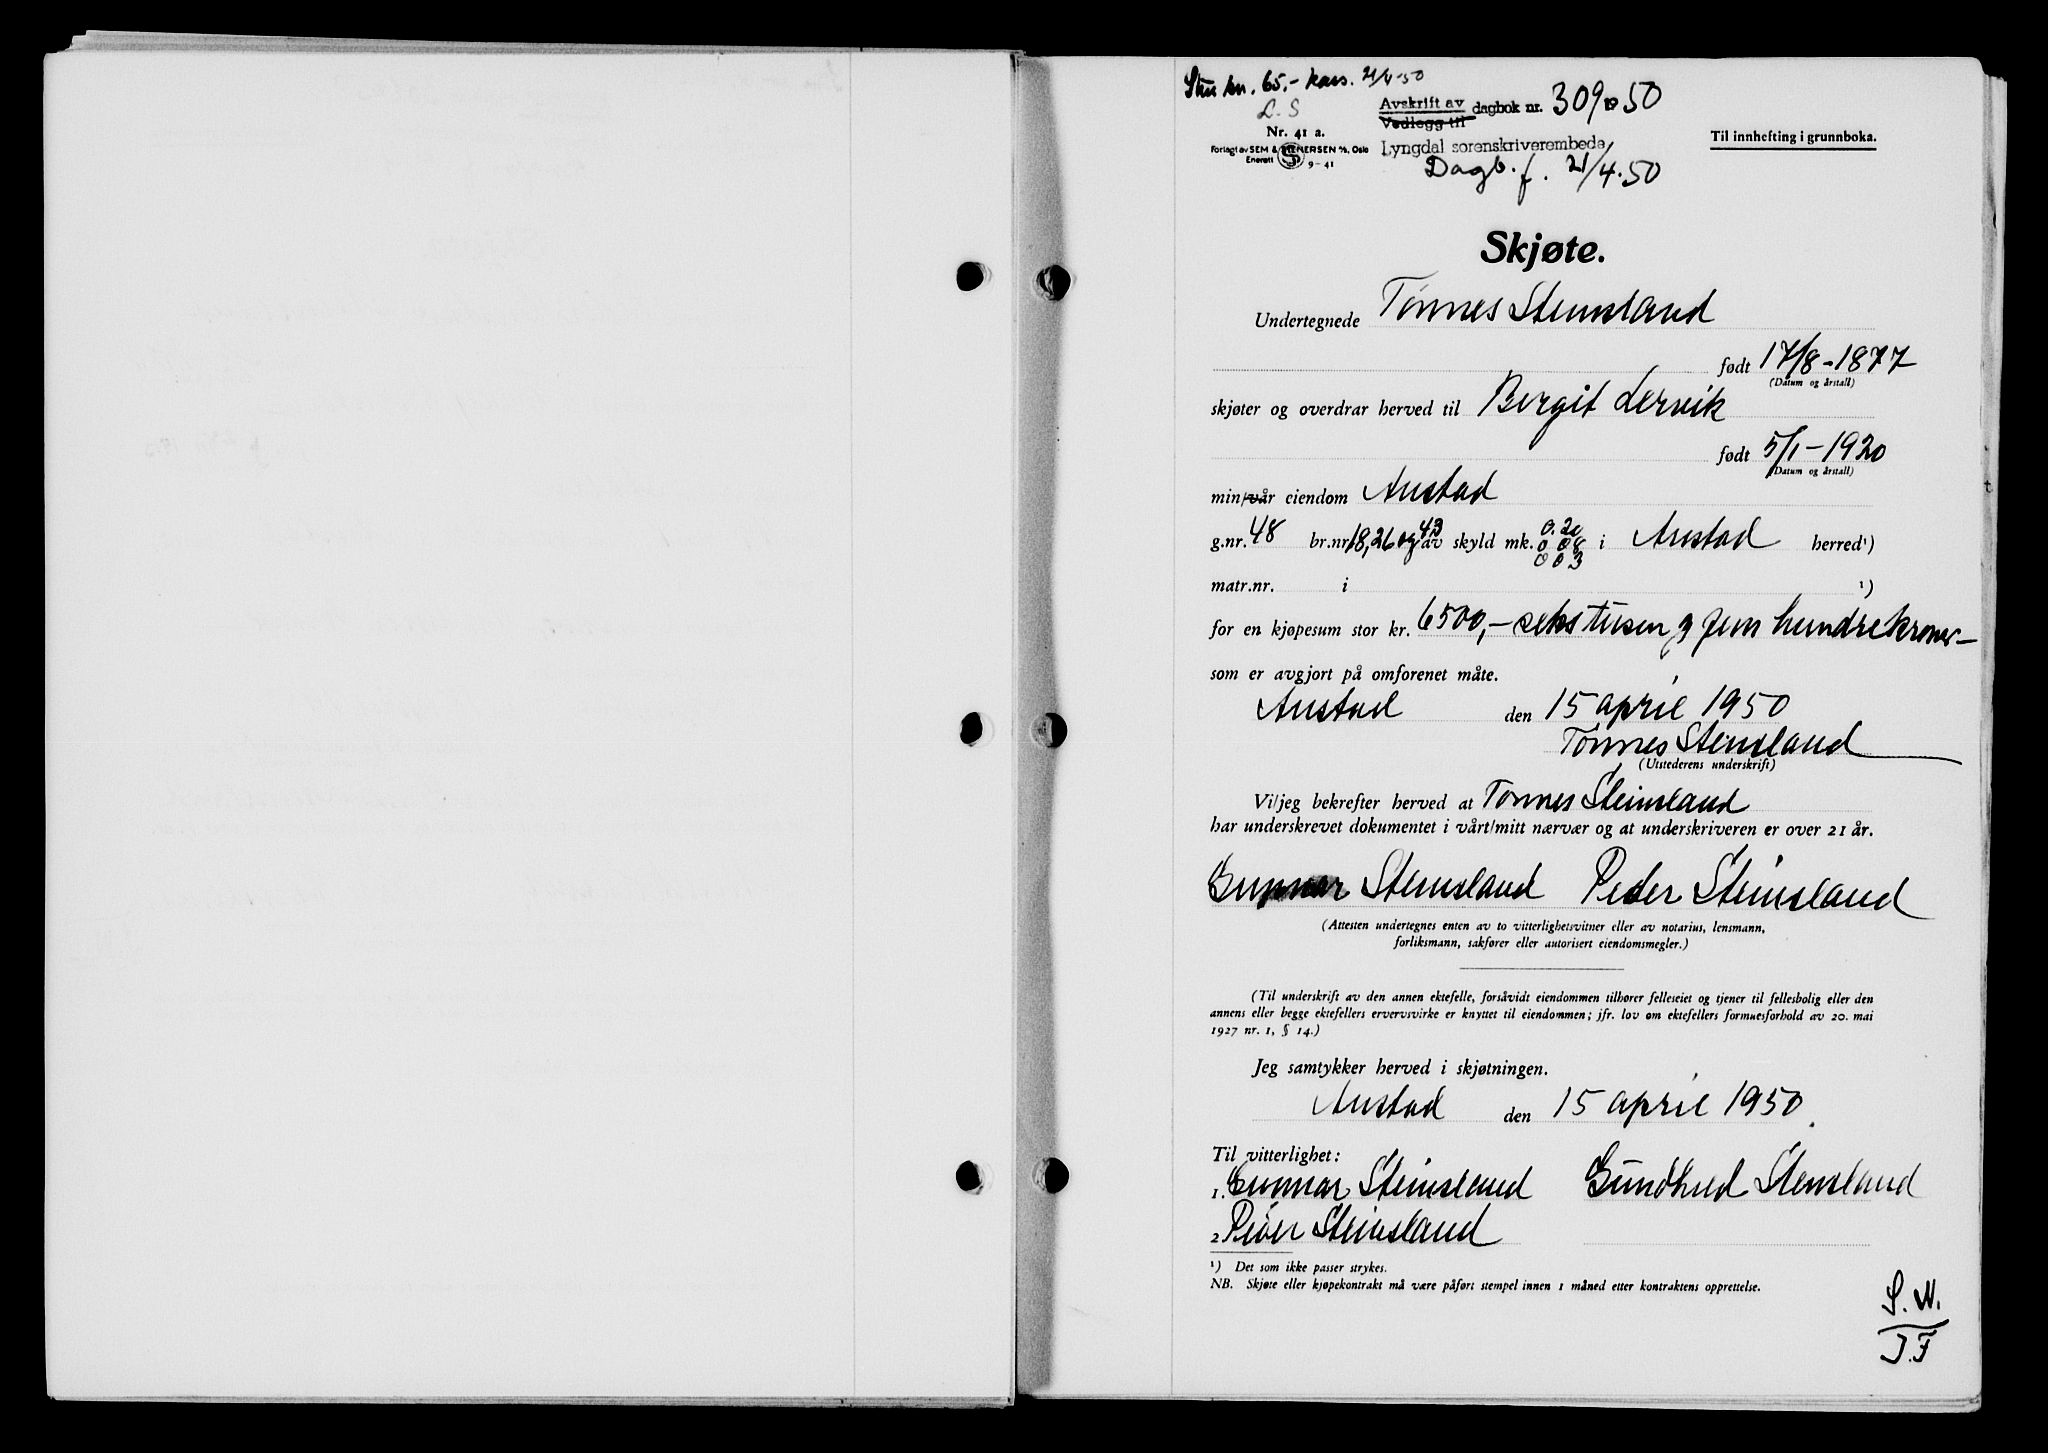 Stu kr. 65,- kass. 21/4-50
L.S
Avskrift av dagbok nr. 309 1950
Vedlegg til
Nr. 41 a.
Til innhefting i grunnboka.
Forlagt av SEM & STENERSEN A/S, Oslo
Enerett 9-41
Lyngdal sorenskriverembede
Dagb. f. 21/4.50
Skjøte.
Undertegnede Tønnes Steinsland
født 17/8-1877
(Datum og årstall)
skjøter og overdrar herved til Bergit Lervik
født 5/1-1920
(Datum og årstall)
min/vår eiendom Austad
g.nr. 48 br.nr. 18, 26 og 43 av skyld mk. 0.20 0 08 0 03 i Austad herred¹)
matr.nr. i ¹)
for en kjøpesum stor kr. 6500,- seks tusen og fem hundre kroner-
som er avgjort på omforenet måte.
Austad den 15 april 1950
Tønnes Steinsland
(Utstederens underskrift)
Vi/jeg bekrefter herved at Tønnes Steinsland
har underskrevet dokumentet i vårt/mitt nærvær og at underskriveren er over 21 år.
Gunnar Steinsland Peder Steinsland
(Attesten undertegnes enten av to vitterlighetsvitner eller av notarius, lensmann,
forliksmann, sakfører eller autorisert eiendomsmegler.)
(Til underskrift av den annen ektefelle, forsåvidt eiendommen tilhører felleseiet og tjener til fellesbolig eller den
annens eller begge ektefellers ervervsvirke er knyttet til eiendommen; jfr. lov om ektefellers formuesforhold av 20. mai
1927 nr. 1, § 14.)
Jeg samtykker herved i skjøtningen.
Austad den 15 april 1950.
Til vitterlighet:
1. Gunnar Steinsland Gundhild Steinsland
2. Peder Steinsland
¹) Det som ikke passer strykes.
NB. Skjøte eller kjøpekontrakt må være påført stempel innen 1 måned etter kontraktens opprettelse.
S. N.
J.F